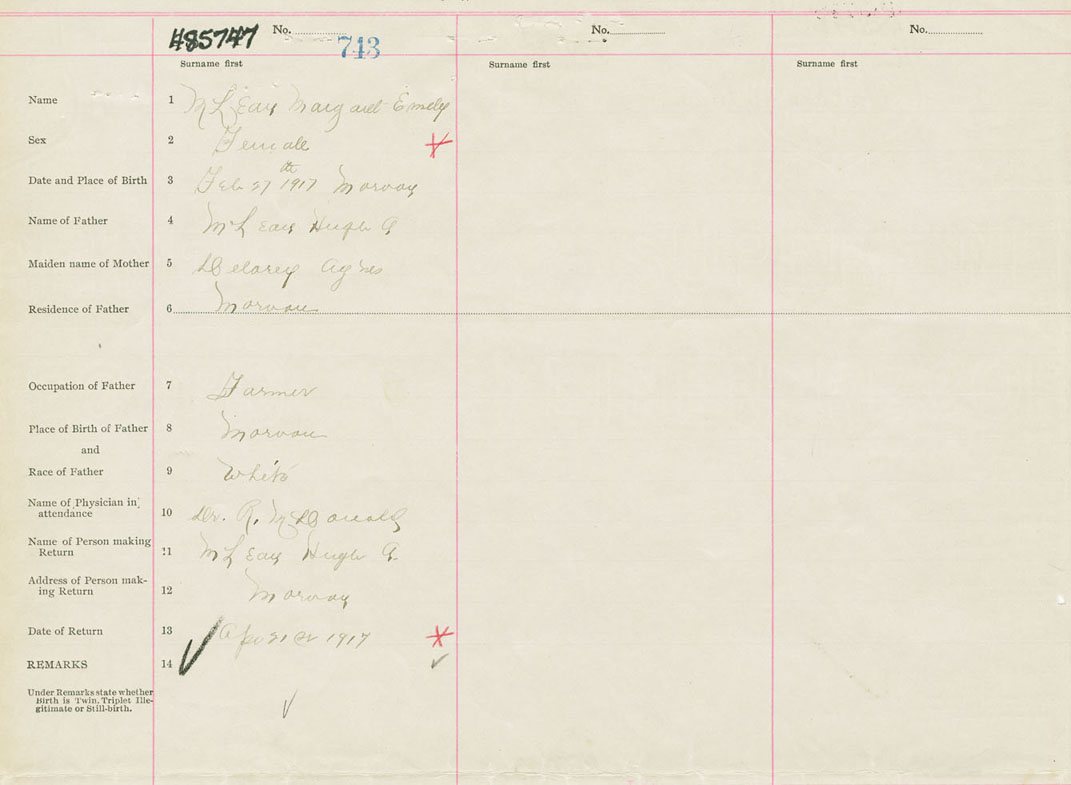 485747 No. 743 No. No.
Surname first Surname first Surname first
Name 1 McLean Margaret Emily
Sex 2 Female
Date and Place of Birth 3 Feb 27th 1917 Morvan
Name of Father 4 McLean Hugh A
Maiden name of Mother 5 Delorey Agnes
Residence of Father 6 Morvan
Occupation of Father 7 Farmer
Place of Birth of Father 8 Morvan
and
Race of Father 9 White
Name of Physician in
attendance 10 Dr. R. McDonald
Name of Person making
Return 11 McLean Hugh A
Address of Person mak-
ing Return 12 Morvan
Date of Return 13 Apr 1917
REMARKS 14
Under Remarks state whether
Birth is Twin, Triplet Ille-
gitimate or Still-birth.